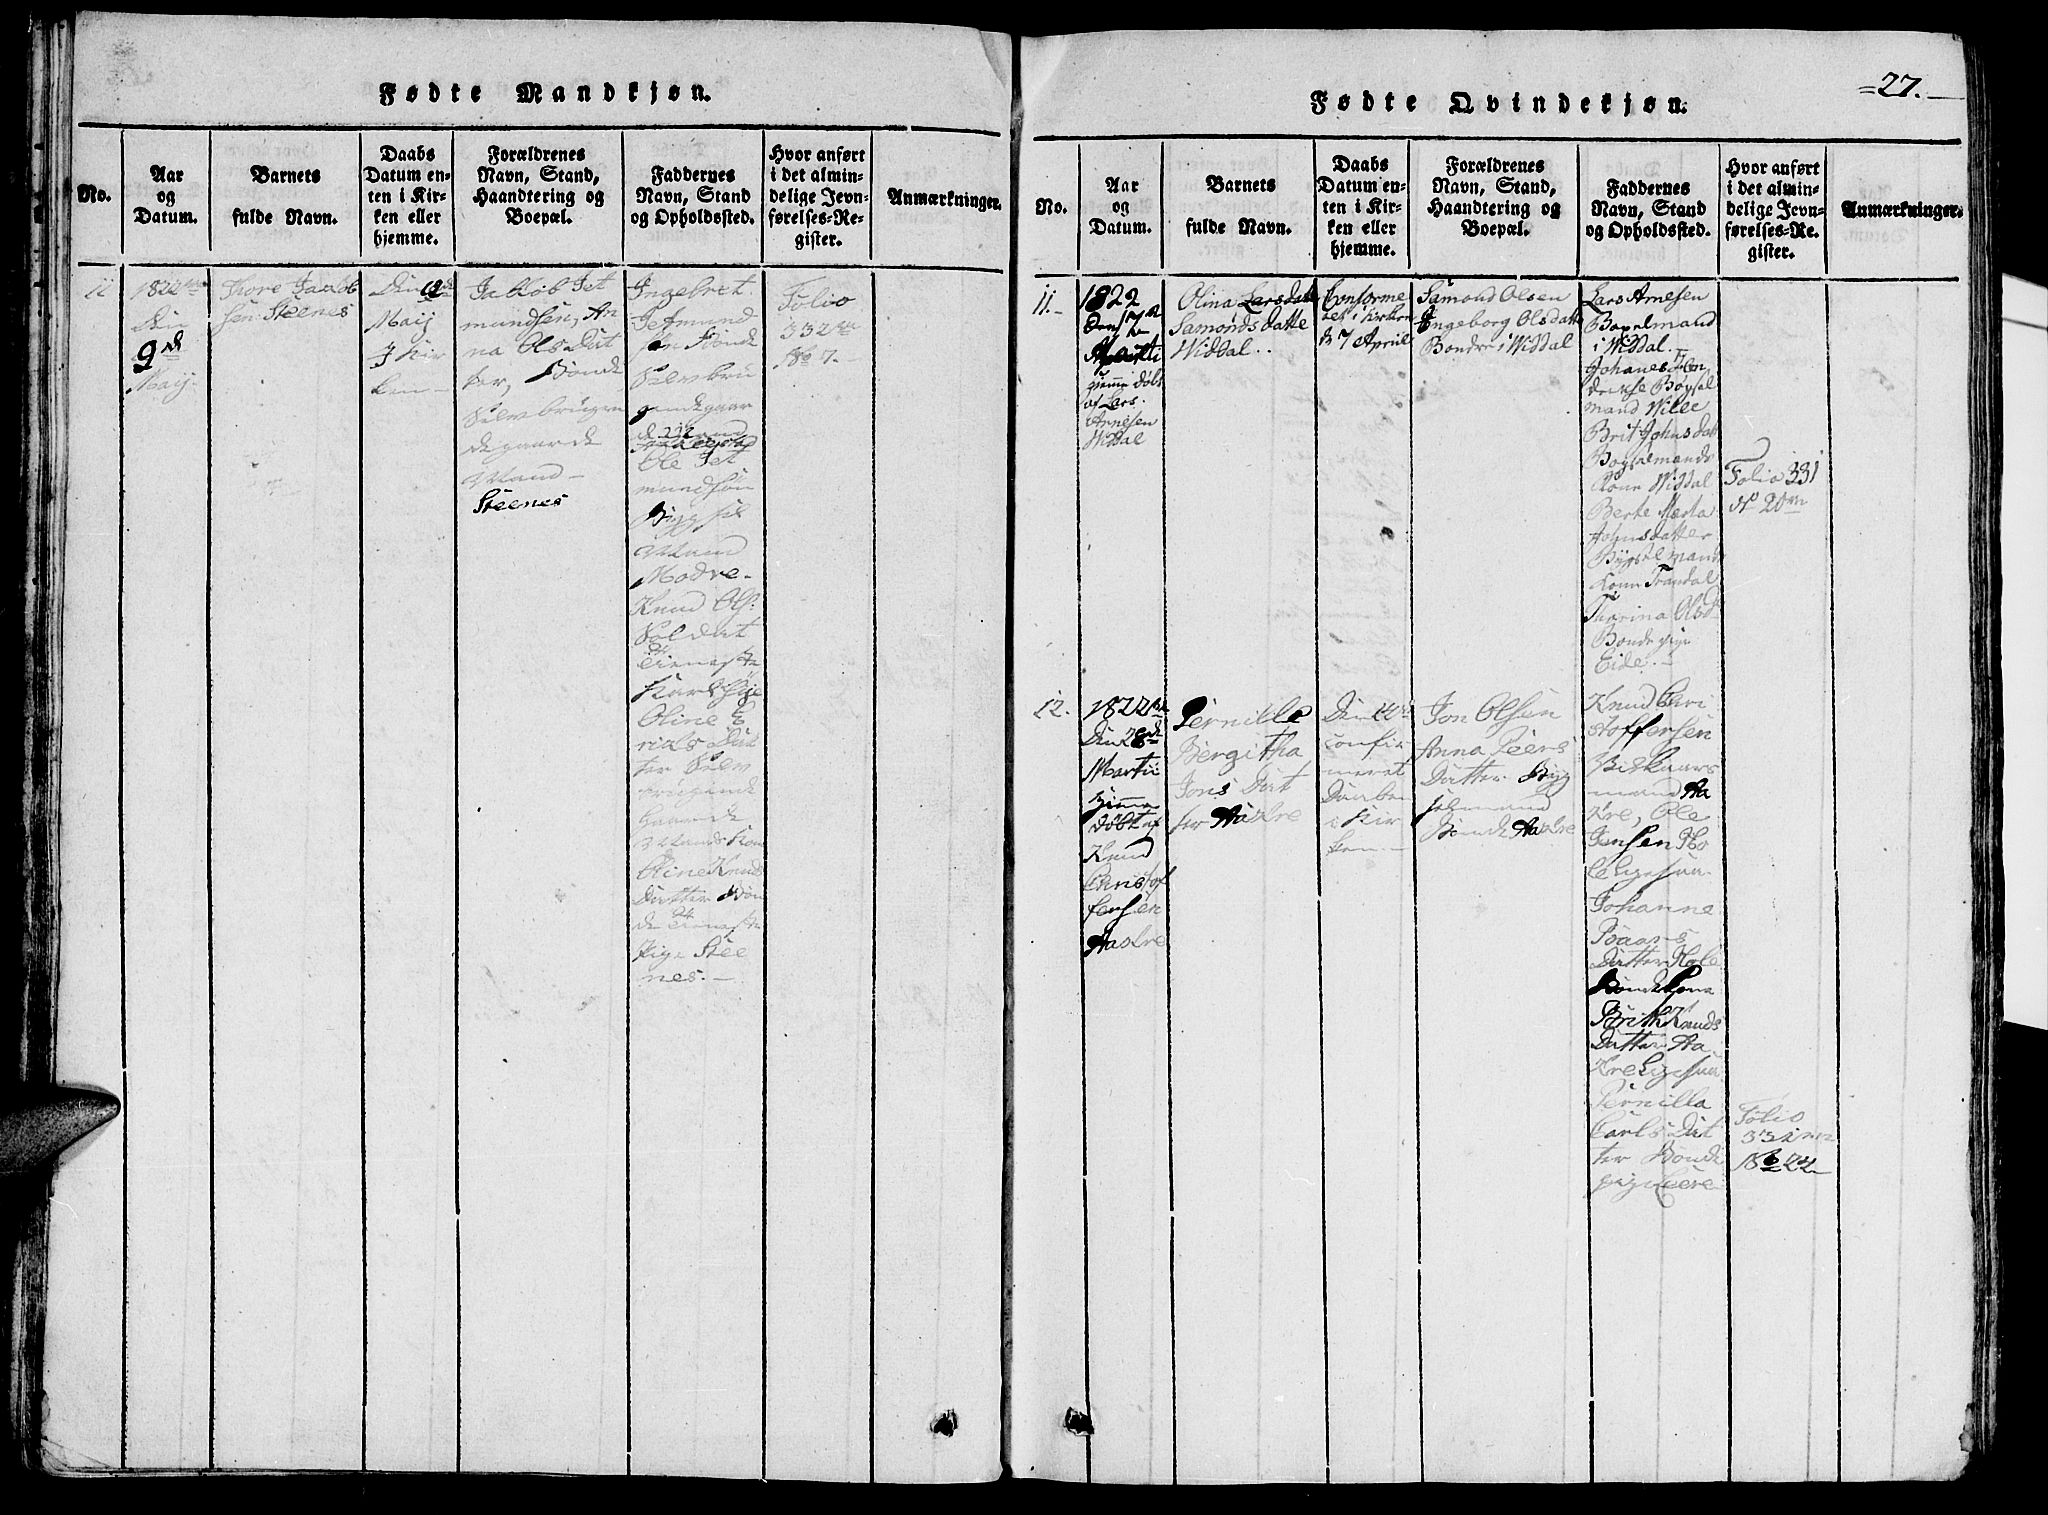 Fødte Mandkjøn.
No.
Aar
og
Datum.
Barnets
fulde Navn.
Daabs
Datum en-
ten i Kir-
ken eller
hjemme.
Forældrenes
Navn, Stand,
Haandtering og
Boepæl.
Faddernes
Navn, Stand
og Opholdssted.
Hvor anført
i det almin-
delige Jevn-
førelses-Re-
gister.
Anmærkninger.
11
1822
Den
9de
Maij
Thore Jakob
sen Steenes
Den
Maij
I Kir
ken
Jakob Jet
mundsen, An
na Ols Dat
ter, Bonde
Selvbrugen
de gaarde
Mand
Steenes
Ingebret
Jetmund
sen Bonde
Selvbru
gende gaar
de Mand
Ole Jet
mundsøn
Bygsel
Mand
Modre
Knud Ols:
Soldat
tieneste
Karl
Oline E
riks Dat
ter Selv
brugende
gaarde
Mands Kone
Oline Knuds
Datter Bon
de tieneste
Pige Stee
nes.
Folio
332
No 7.
Fødte Qvindekjøn.
=27.
No.
Aar
og
Datum.
Barnets
fulde Navn.
Daabs
Datum en-
ten i Kir-
ken eller
hjemme.
Forældrenes
Navn, Stand,
Haandtering og
Boepæl.
Faddernes
Navn, Stand
og Opholdssted.
Hvor anført
i det almin-
delige Jevn-
førelses-Re-
gister.
Anmærkninger.
11.
1822
Den
hjemme døbt
af Lars
Arnesen
Widdal
Olina Larsdatte
Samonds datte
Widdal
Conforme
ret i Kirken
7 Apriil
Samond Olsen
Ingeborg Olsdatte
Bonde i Widdal
Lars Arnesen
Bøxelmand
i Widdal
Johanes Hen
drikse Bøgsel
mand Wille
Brit Johnsdat
Bøgselmands
Kone Widdal
Berte Marta
Johnsdatter
Bygselmands
Kone Trandal
Tharina Olsd
Bonde pige
Eide.
Folio 331
No 20
12.
1822
Den 28de
Martii
Hjemme
døbt af
Knud
Christof
fersøn
Aakre
Pernille
Bergitha
Jons Dat
ter Aakre
Den
confir
meret
Daaben
i Kir
ken
Jon Olsen
Anna Peers
Datter Byg
selmand
Bonde Aakre
Knud Chri
stoffersen
Mand Aa
kre, Ole
Jensen Ho
le
Johanne
Datter Hole
Bonde Kone
Brith Knuds
Datter Aa
kre
Pernilla
Carls Dat
ter Bonde
pige Leere
Folio
332
No 22